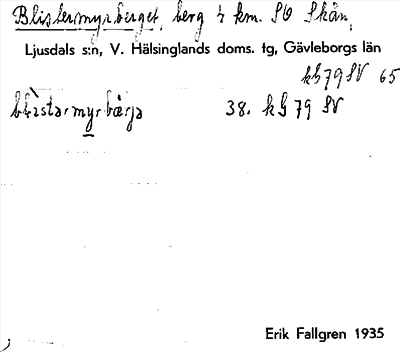 Blistermyrberget, berg 4 km. SO Skån,
Ljusdals s:n, V. Hälsinglands doms. tg, Gävleborgs län
kG79SV 65
38. kG79 SV
Erik Fallgren 1935